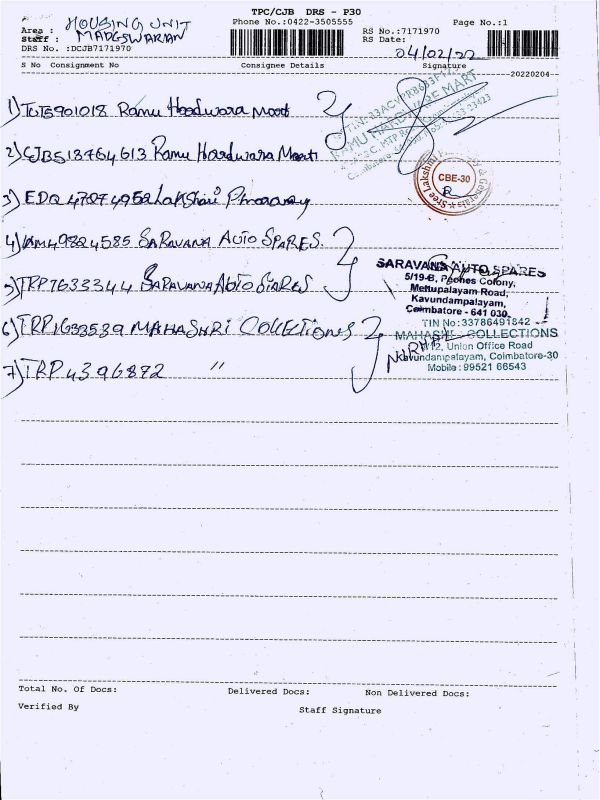 TPC/CJB DRS - P30
Area : HOUSING UNIT
Phone No.:0422-3505555
Page No.:1
Staff : MADGSWARIAN
RS No.:7171970
DRS No. :DCJB7171970
RS Date: 04/02/22
S No Consignment No Consignee Details Signature
20220204
1) 5901018 Ramu Hardwara Mart
2) CJB518764613 Ramu Hardwara Mart
3) EDQ 47274952 Lakshmi
4) 49824585 SARAVANA AUTO SPARES.
5) TRP7633344 SARAVANA AUTO SPARES
6) TRP1633539 MAHASHRI COLLECTIONS
7) TRP4396872 "
RAMU HARDWARE MART
Sree Lakshmi
CBE-30
SARAVANA AUTO SPARES
5/19-B, Peohes Colony,
Mettupalayam Road,
Kavundampalayam,
Coimbatore - 641 030.
TIN No: 33786491842
MAHASHRI COLLECTIONS
Union Office Road
Kavundampalayam, Coimbatore-30
Mobile: 99521 66543
Total No. Of Docs: Delivered Docs: Non Delivered Docs:
Verified By Staff Signature